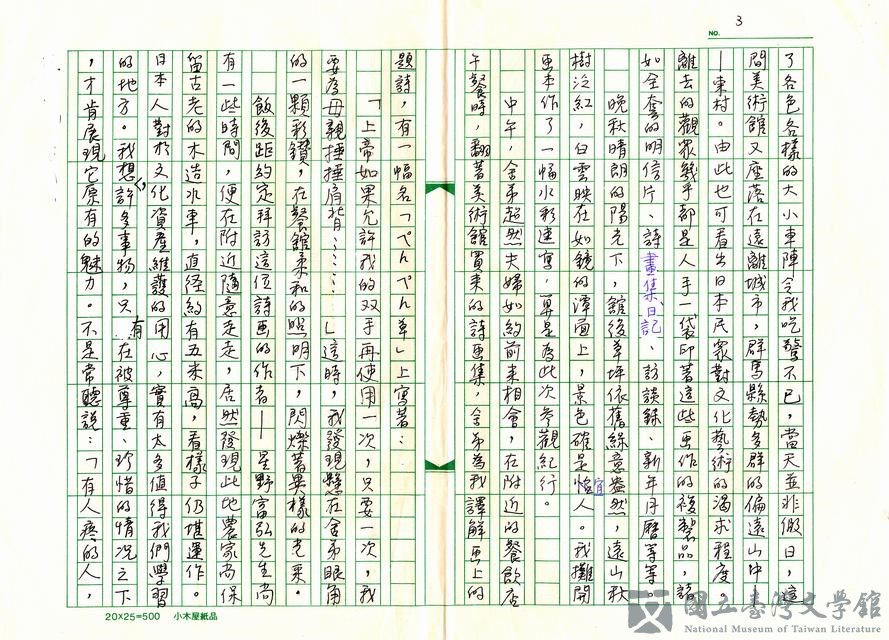 NO. 3
了各色各樣的大小車陣令我吃驚不已,當天並非假日,這
間美術館又座落在遠離城市,群馬縣勢多群的偏遠山中
—東村。由此也可看出日本民眾對文化藝術的渴求程度。
離去的觀眾幾乎都是人手一袋印著這些畫作的複製品,諸
如全套的明信片、詩畫集、日記、訪談錄、新年月曆等等。
晚秋晴朗的陽光下,館後草坪依舊綠意盎然,遠山秋
樹泛紅,白雲映在如鏡的潭面上,景色確是宜人。我攤開
畫本作了一幅水彩速寫,算是為此次參觀紀行。
中午,舍弟超然夫婦如約前來相會,在附近的餐飲店
午餐時,翻著美術館買來的詩畫集,舍弟為我譯解畫上的
題詩,有一幅名「ぺんぺん草」上寫著:
「上帝如果允許我的双手再使用一次,只要一次,我
要為母親捶捶肩背……」這時,我發現懸在舍弟眼角
的一顆彩鑽,在餐館柔和的照明下,閃爍著異樣的光采。
飯後距約定拜訪這位詩画的作者—星野富弘先生尚
有一些時間,便在附近隨意走走,居然發現此地農家尚保
留古老的木造水車,直徑約有五米高,看樣子仍堪運作。
日本人對於文化資產維護的用心,實有太多值得我們學習
的地方。我想,許多事物,只有在被尊重、珍惜的情況之下
,才肯展現它原有的魅力。不是常聽說:「有人疼的人,
20X25=500 小木屋紙品
國立臺灣文學館
National Museum of Taiwan Literature